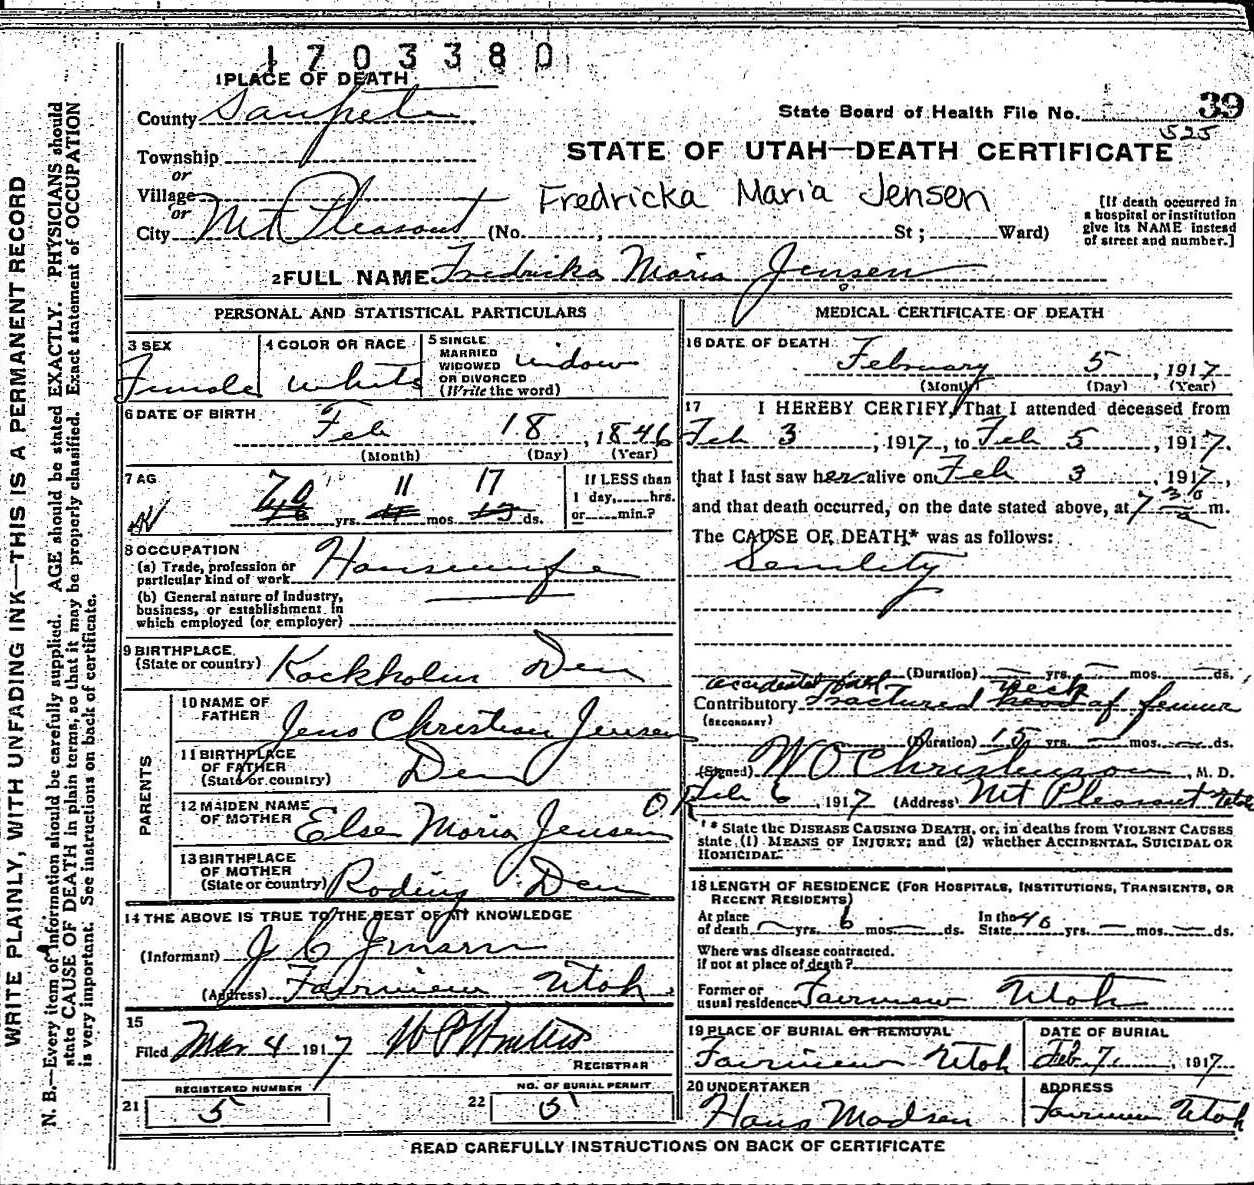 1703380
1 PLACE OF DEATH
County Sanpete
State Board of Health File No. 39
525
Township
or
STATE OF UTAH—DEATH CERTIFICATE
Village
or
Fredricka Maria Jensen
City Mt Pleasant (No. , St ; Ward)
[If death occurred in
a hospital or institution
give its NAME instead
of street and number.]
2 FULL NAME Fredricka Maria Jensen
PERSONAL AND STATISTICAL PARTICULARS
3 SEX
Female
4 COLOR OR RACE
White
5 SINGLE
MARRIED
WIDOWED
OR DIVORCED
(Write the word)
Widow
6 DATE OF BIRTH
Feb 18, 1846
(Month) (Day) (Year)
7 AG
70 yrs. 11 mos 17 ds.
If LESS than
1 day, hrs.
or min.?
8 OCCUPATION
(a) Trade, profession or
particular kind of work Housewife
(b) General nature of industry,
business, or establishment in
which employed (or employer)
9 BIRTHPLACE
(State or country) Kockholm Den
PARENTS
10 NAME OF
FATHER Jens Christian Jensen
11 BIRTHPLACE
OF FATHER
(State or country) Den
12 MAIDEN NAME
OF MOTHER Else Maria Jensen
13 BIRTHPLACE
OF MOTHER
(State or country) Roding Den
14 THE ABOVE IS TRUE TO THE BEST OF MY KNOWLEDGE
(Informant) J C Jensen
(Address) Fairview Utah
15
Filed Mar 4 1917
REGISTRAR
REGISTERED NUMBER
21 5
NO. OF BURIAL PERMIT
22 5
MEDICAL CERTIFICATE OF DEATH
16 DATE OF DEATH
February 5, 1917
(Month) (Day) (Year)
17 I HEREBY CERTIFY, That I attended deceased from
Feb 3 ; 1917, to Feb 5, 1917,
that I last saw her alive on Feb 3, 1917,
and that death occurred, on the date stated above, at 7 30 a m.
The CAUSE OF DEATH* was as follows:
Senility
(Duration) yrs. mos. ds.
accidental fall neck
Contributory Fractured head of femur
(SECONDARY)
(Duration) 15 yrs. mos. ds.
(Signed) W O Christenson, M. D.
OK Feb 6, 1917 (Address) Mt Pleasant Utah
* State the DISEASE CAUSING DEATH, or, in deaths from VIOLENT CAUSES
state (1) MEANS OF INJURY; and (2) whether ACCIDENTAL, SUICIDAL OR
HOMICIDAL.
18 LENGTH OF RESIDENCE (FOR HOSPITALS, INSTITUTIONS, TRANSIENTS, OR
RECENT RESIDENTS)
At place
of death yrs. 6 mos. ds.
In the
State 40 yrs. mos. ds.
Where was disease contracted.
if not at place of death?
Former or
usual residence Fairview Utah
19 PLACE OF BURIAL OR REMOVAL
Fairview Utah
DATE OF BURIAL
Feb 7, 1917
20 UNDERTAKER
Hans Madsen
ADDRESS
Fairview Utah
READ CAREFULLY INSTRUCTIONS ON BACK OF CERTIFICATE
WRITE PLAINLY, WITH UNFADING INK—THIS IS A PERMANENT RECORD
N. B.—Every item of information should be carefully supplied. AGE should be stated EXACTLY. PHYSICIANS should
state CAUSE OF DEATH in plain terms, so that it may be properly classified. Exact statement of OCCUPATION
is very important. See instructions on back of certificate.